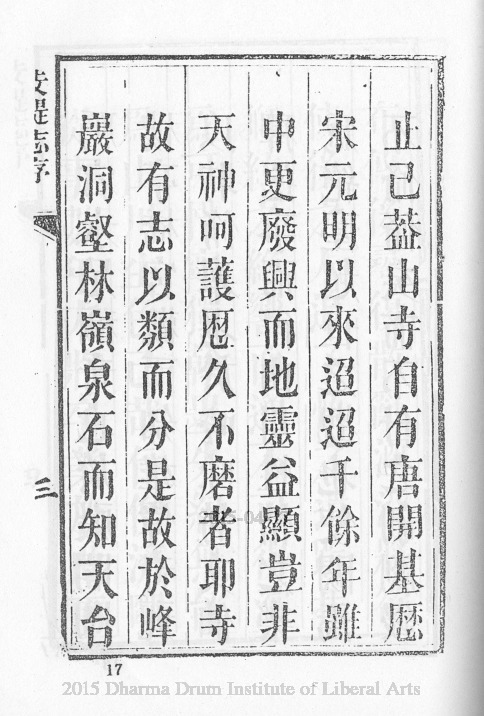 止己葢山寺自有唐開基歴
宋元明以來迢迢千餘年雖
中更廢興而地靈益顯豈非
天神呵護厯久不磨者耶寺
故有志以類而分是故於峰
巖洞壑林嶺泉石而知天台
支提志序
三
17
2015 Dharma Drum Institute of Liberal Arts